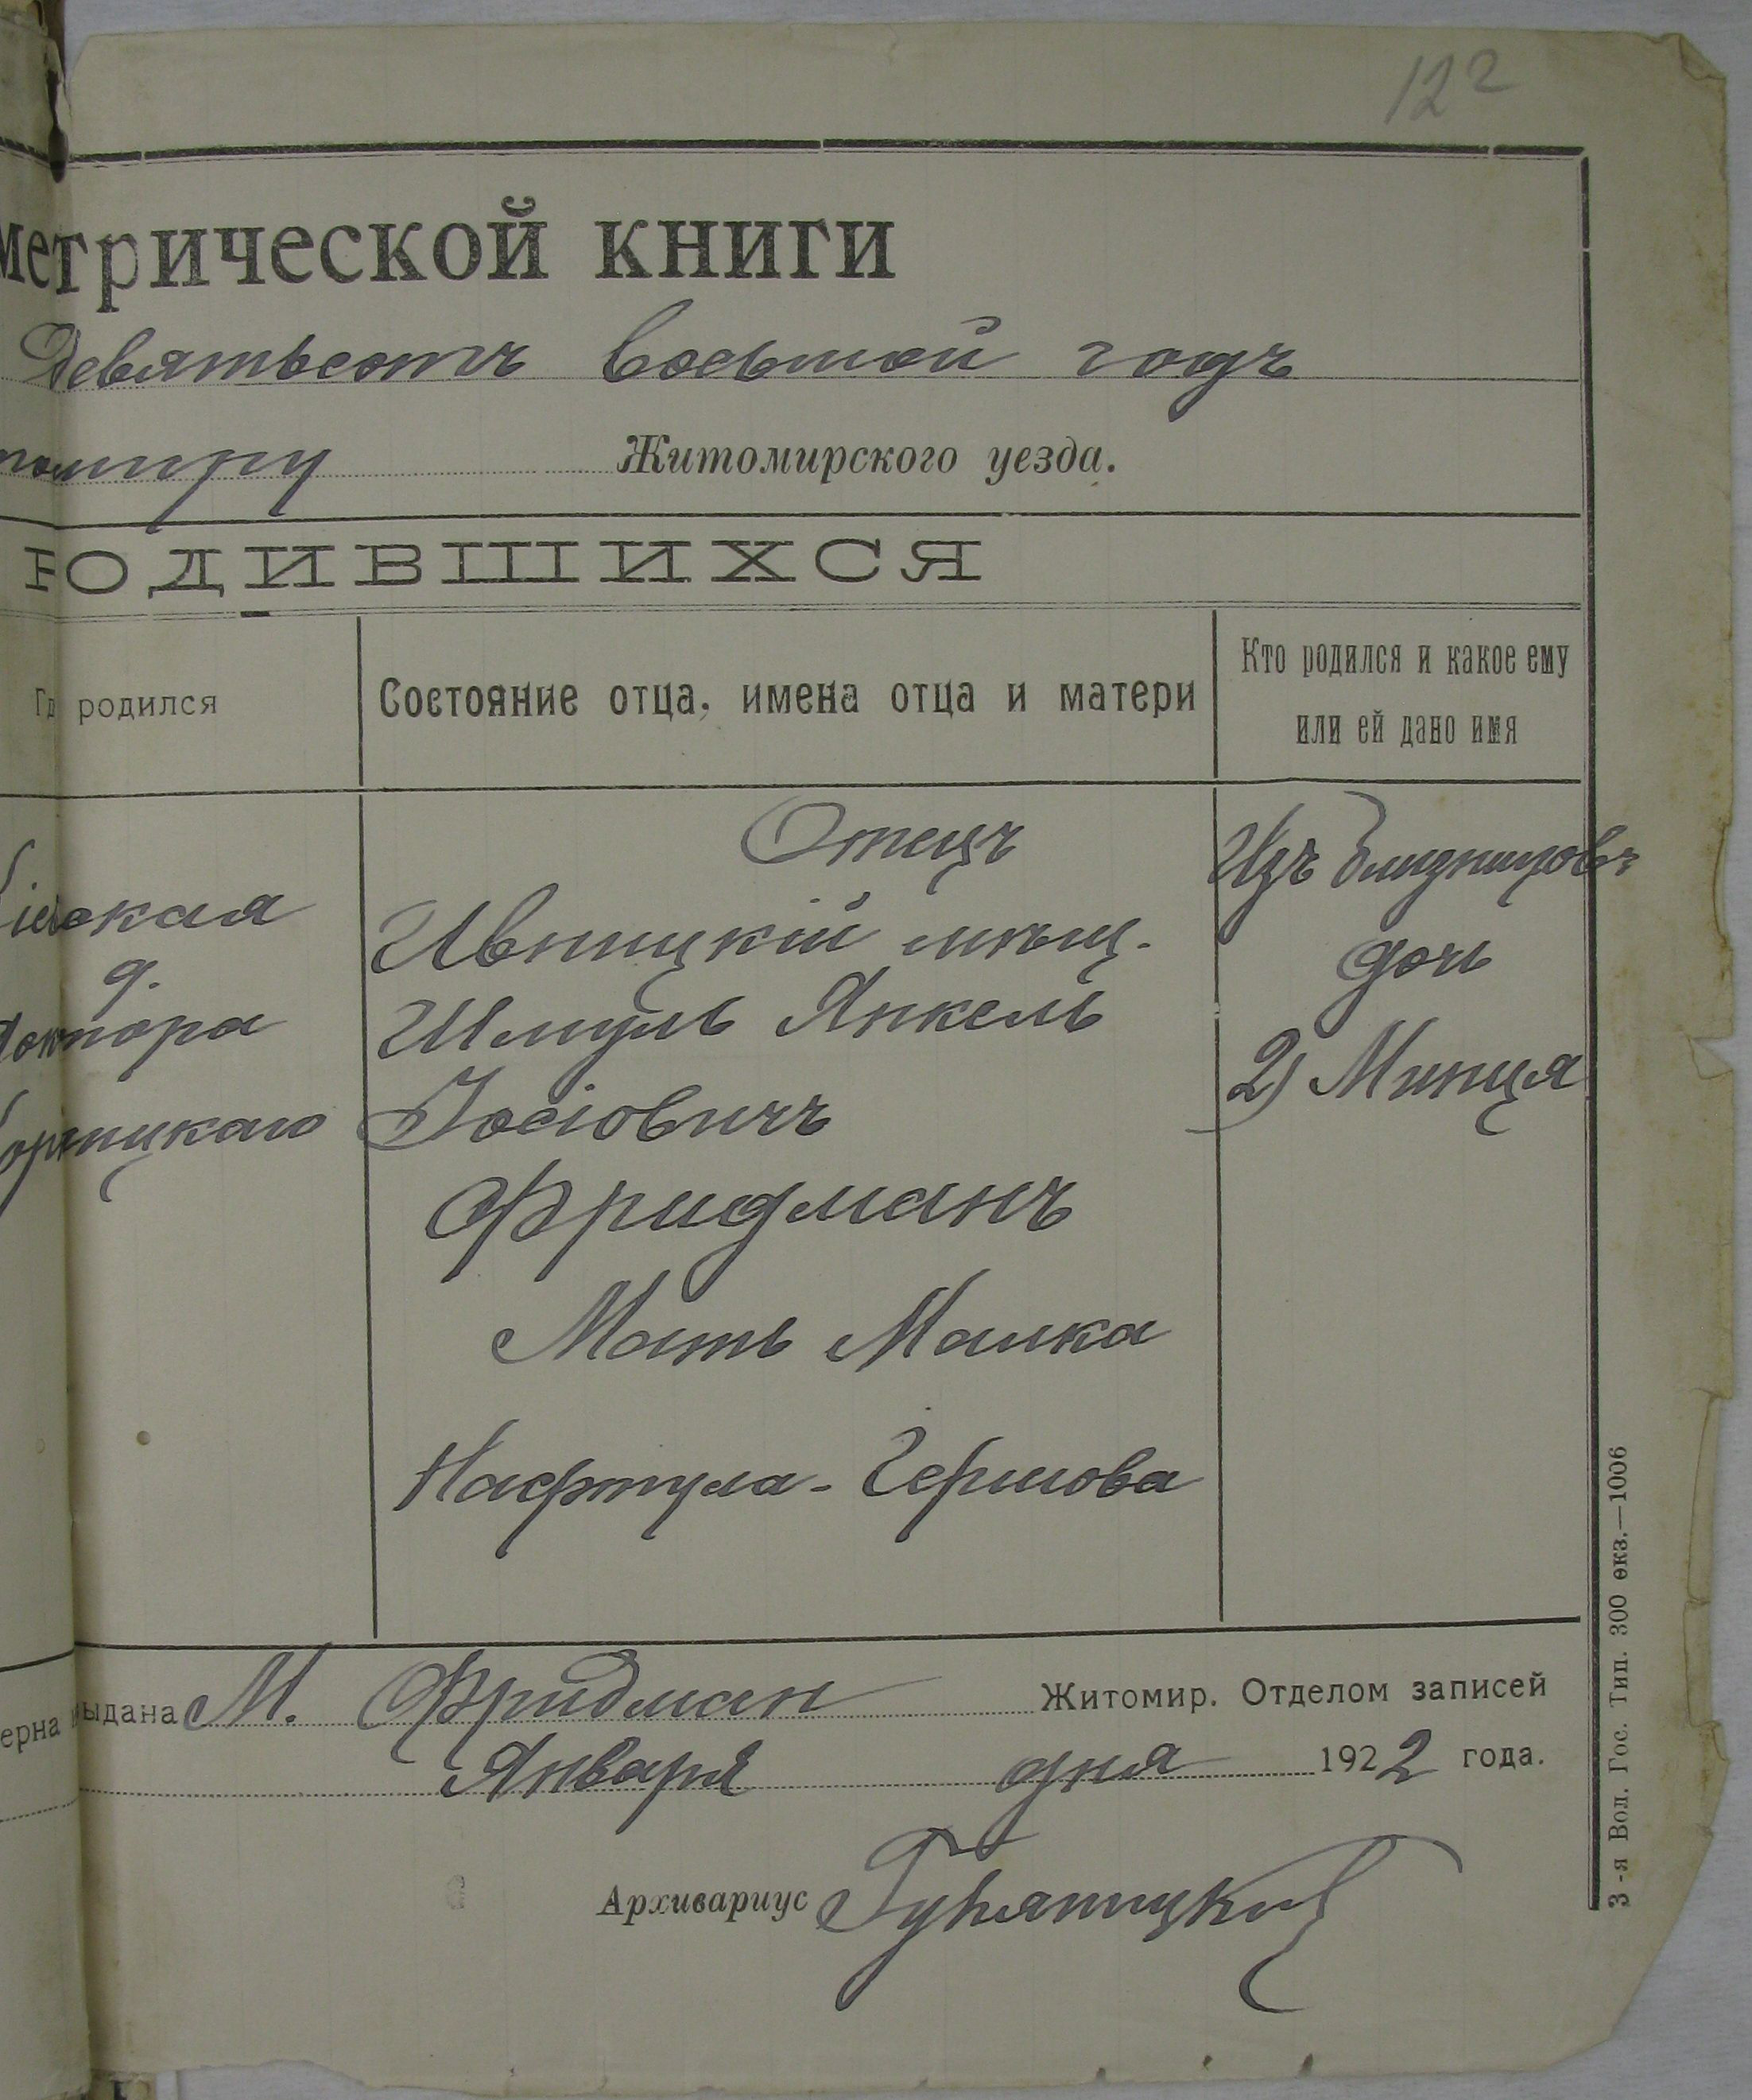 122
метрической книги
Девятьсотъ восьмой годъ
томиру Житомирского уезда.
РОДИВШИХСЯ
Где родился
Состояние отца, имена отца и матери
Кто родился и какое ему
или ей дано имя
ская
д.
доктора
Отецъ
Ивницкій мѣщ.
Шмуль Янкель
Іосіовичъ
Фридманъ
Мать Малка
Нафтула-Гершова
Изъ близнецовъ
дочь
2) Минця
верна выдана М. Фридман Житомир. Отделом записей
Января дня 1922 года.
Архивариус
3-я Вол. Гос. Тип. 300 экз.—1006